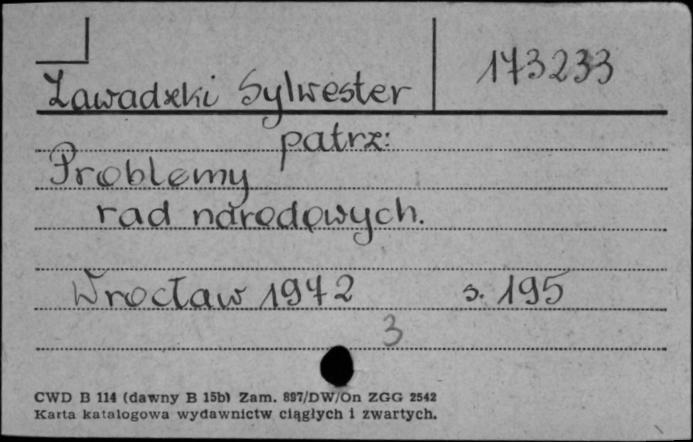 173233
Zawadzki Sylwester
patrz:
Problemy
rad narodowych.
Wrocław 1972 s. 195
3
CWD B 114 (dawny B 15b) Zam. 897/DW/On ZGG 2542
Karta katalogowa wydawnictw ciągłych i zwartych.